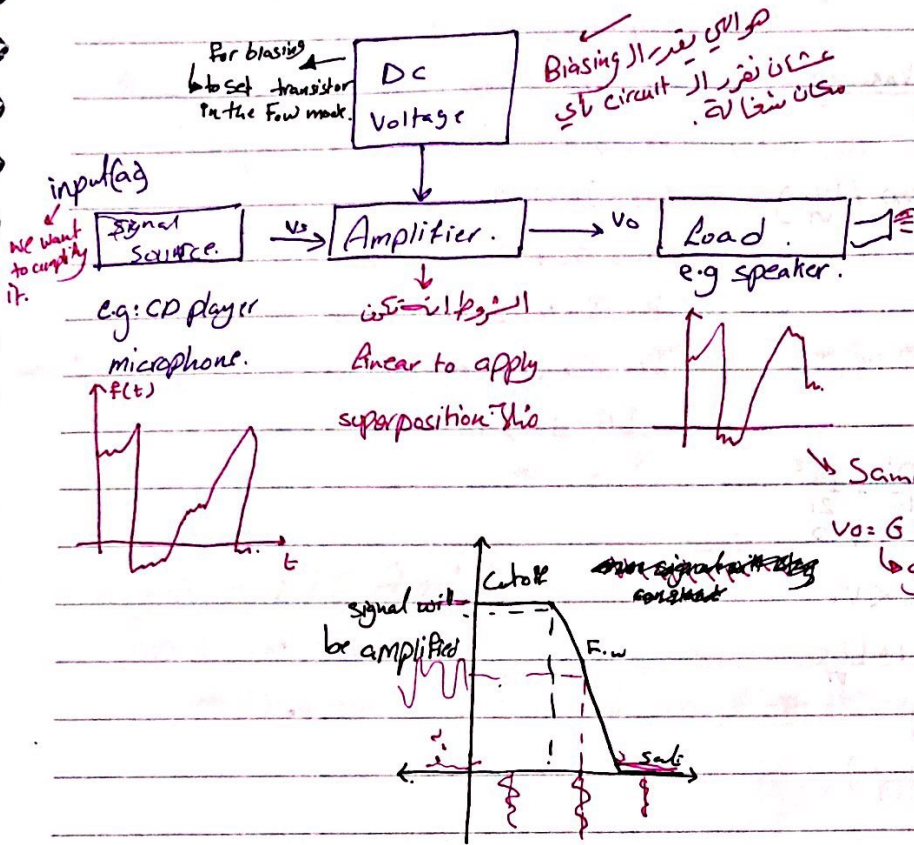 for biasing
to set transistor
in the F.w mode.
DC
Voltage
هو اللي يقدر ال Biasing
عشان نقرر ال circuit باي
مكان شغالة.
input(ac)
we want
to amplify
it.
signal
source.
Vs
Amplifier.
Vo
Load.
e.g speaker.
e.g: CD player
microphone.
الشروط انه تكون
Linear to apply
superposition
f(t)
t
Sam
Vo = G
Cutoff
signal will
be amplified
F.w
Sat